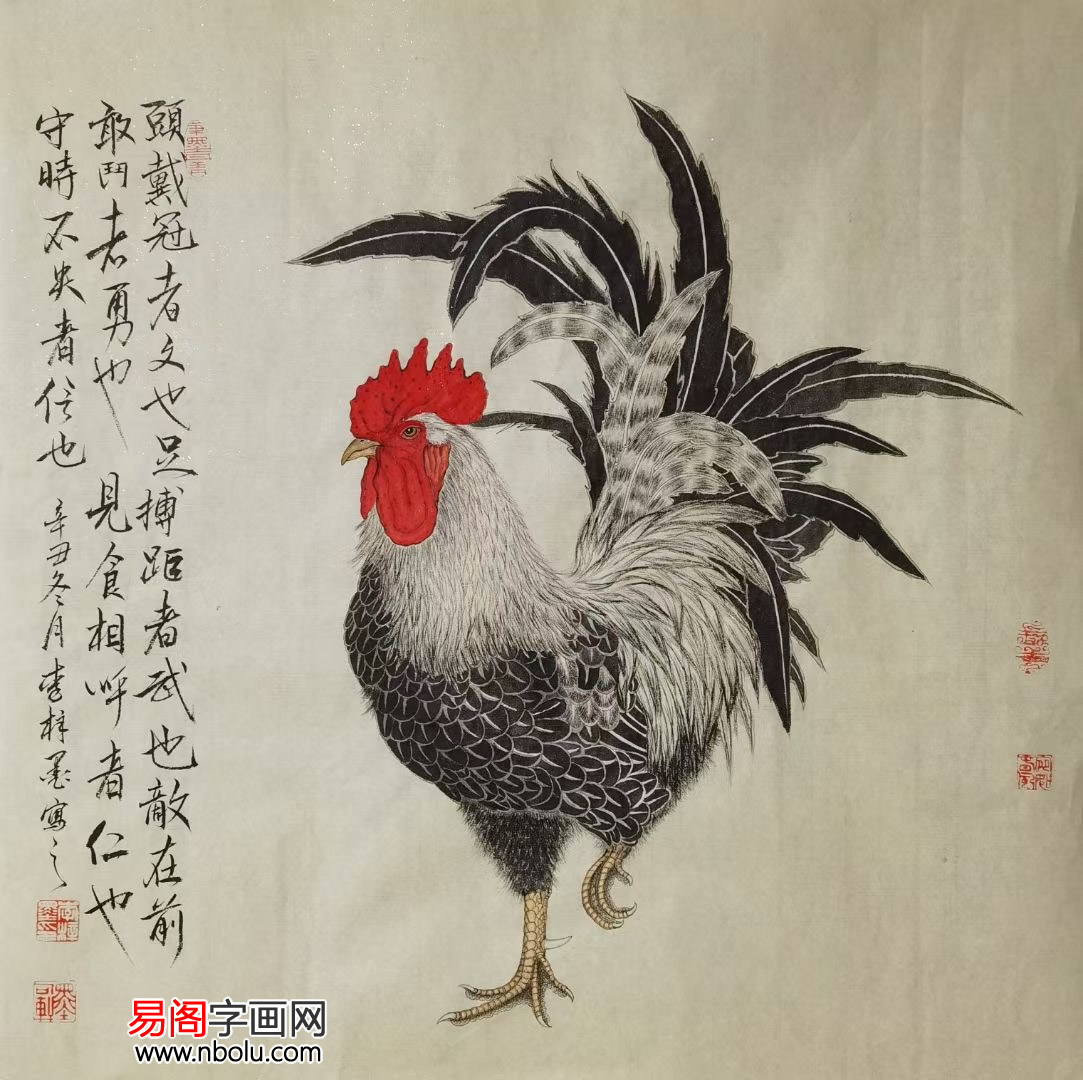 頭戴冠者文也足搏距者武也敵在前
敢鬥者勇也見食相呼者仁也
守時不失者信也
辛丑冬月李梓墨寫之
易阁字画网
www.nbolu.com